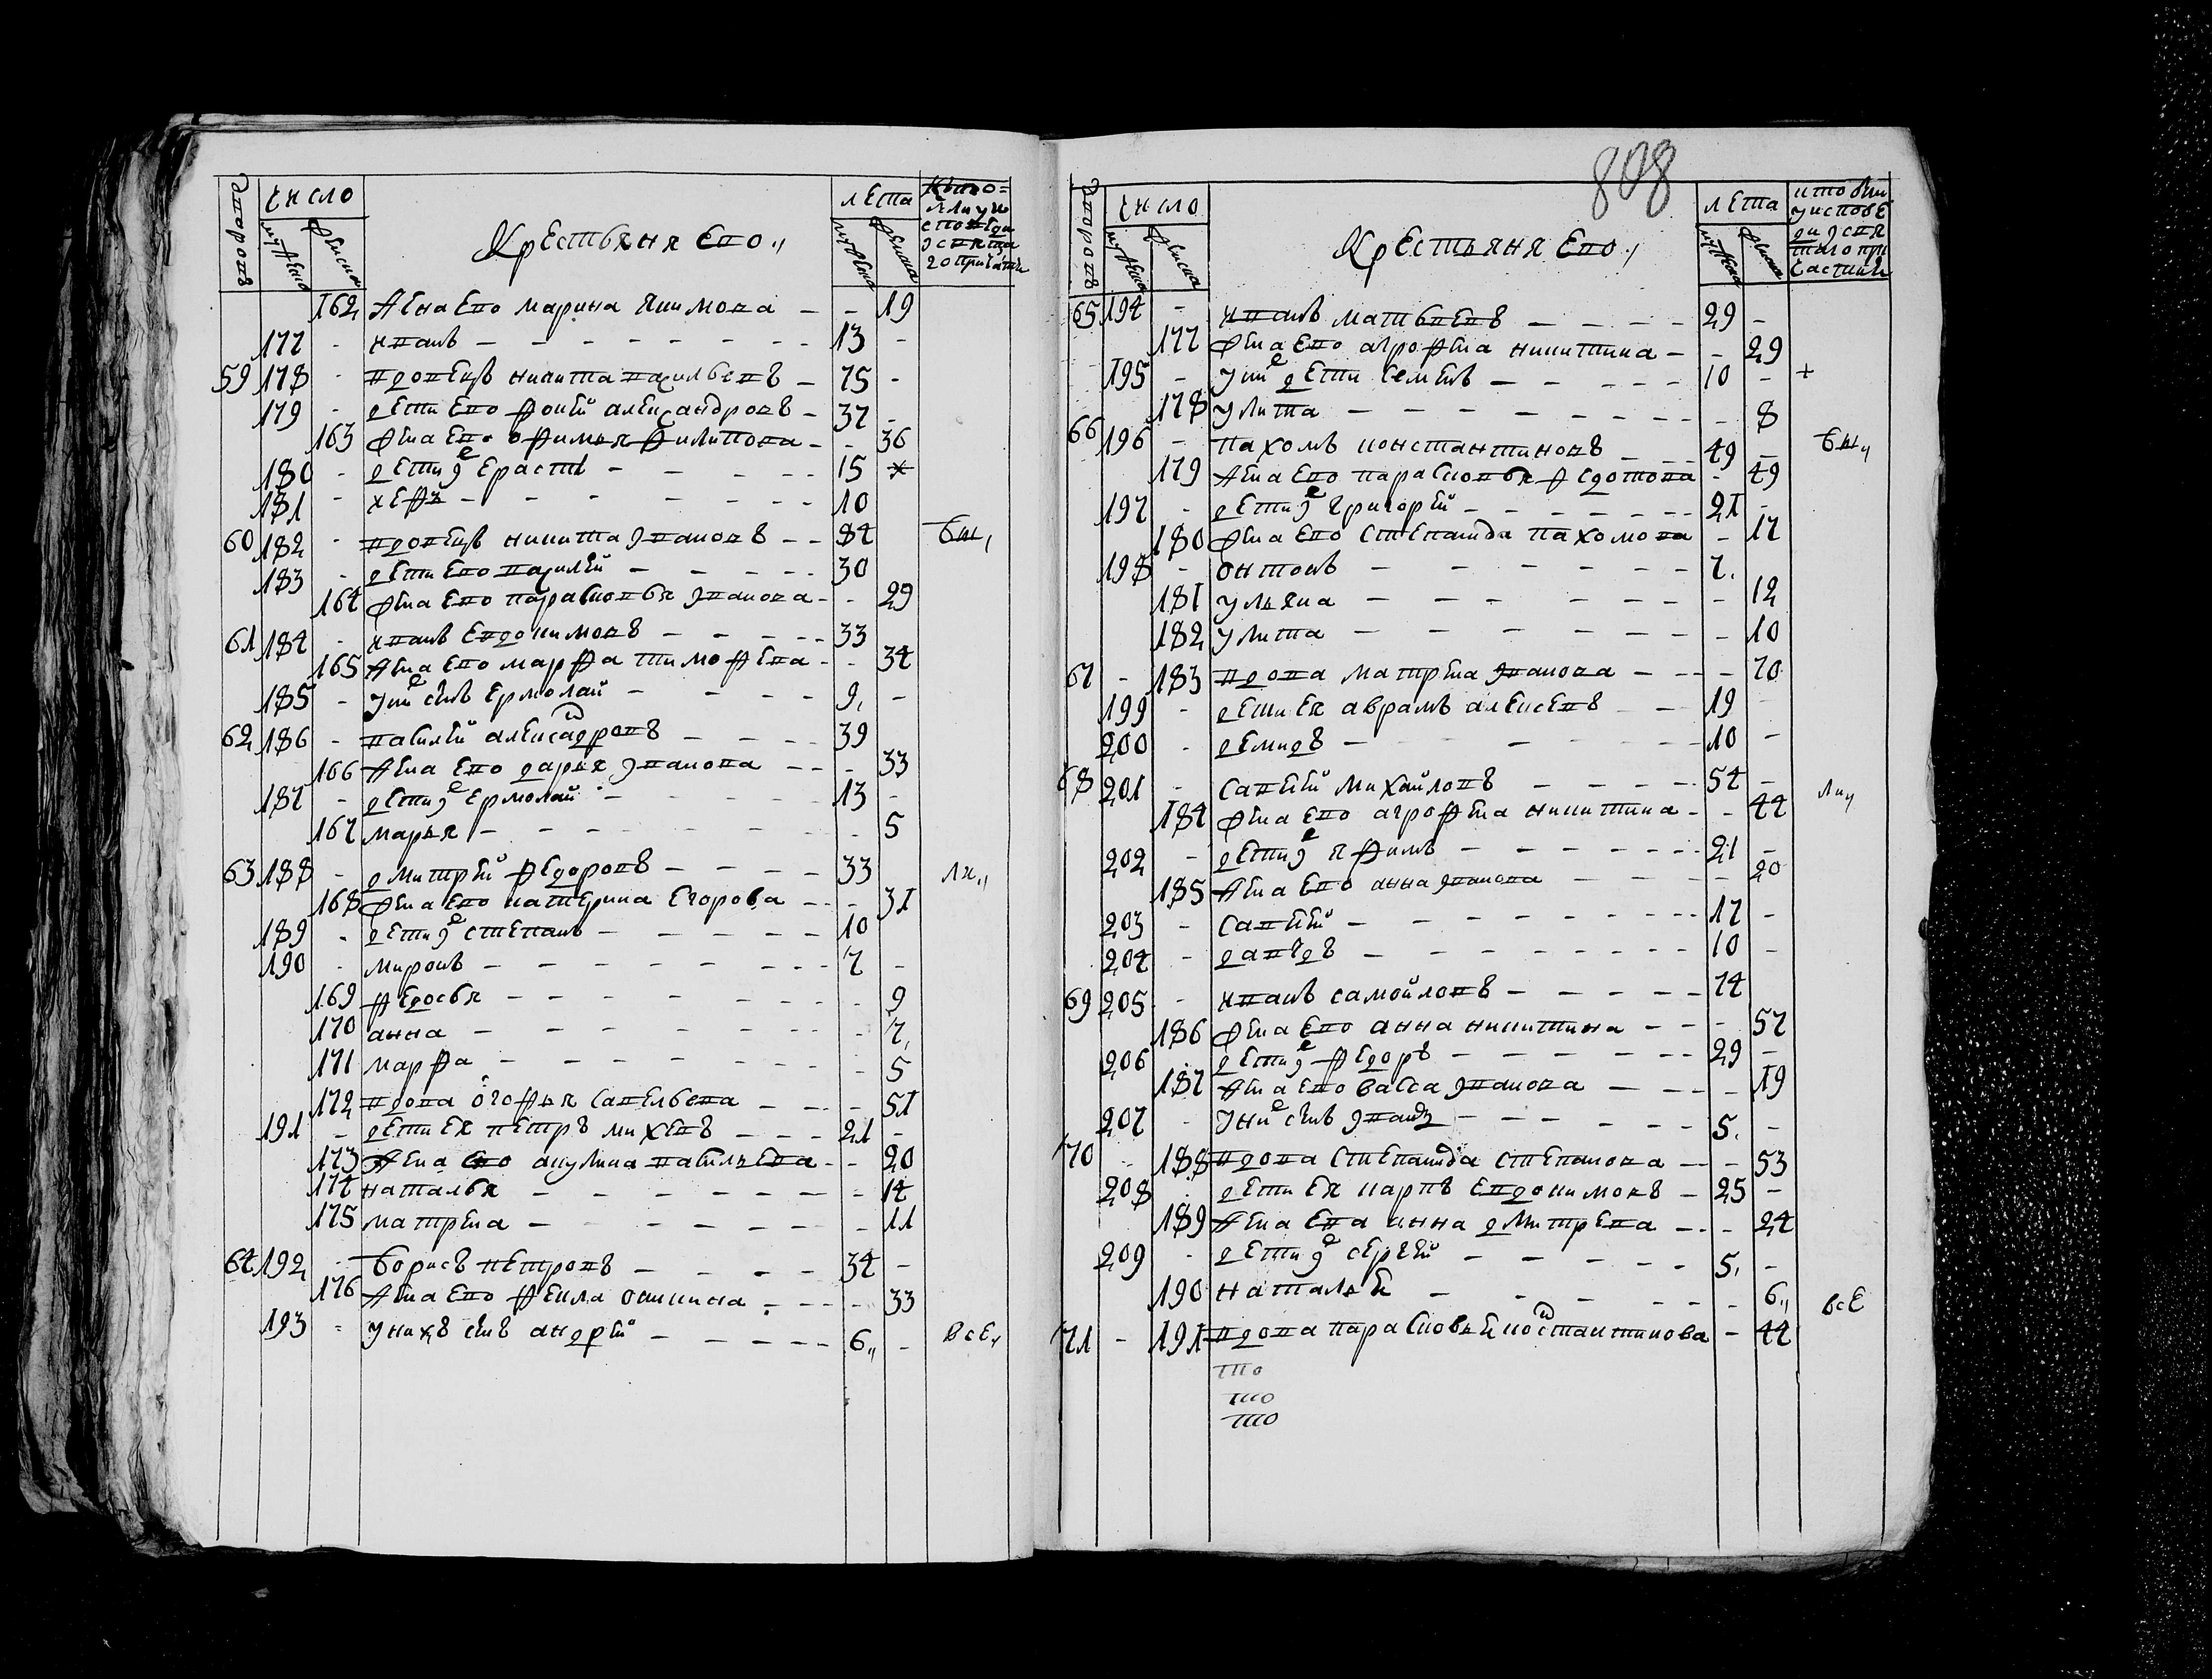 808
дворовъ
число
мужеска
женска
Крестьяня ево
лета
мужеска
женска
162 Жена ево марина Якимова 19
177 иванъ 13
59 178 вдовецъ никита васильевъ 75
179 дети ево фокей александровъ 37
163 жена ево офимья филипова 36
180 дети ерастъ 15
181 10
60 182 вдовецъ никита ивановъ 84 бы
183 дети ево василей 30
164 жена ево парасковья иванова 29
61 184 иванъ евдокимовъ 33
165 Жена ево марфа тимофева 34
185 у них сынъ ермолай 9
62 186 василей алексадровъ 39
166 Жена ево дарья иванова 33
187 дети ермолай 13
167 марья 5
63 188 дмитрей федоровъ 33
168 жена ево катерина егорова 31
189 дети степанъ 10
190 миронъ 7
169 федосья 9
170 анна 7
171 марфа 5
172 вдова огофья савельева 51
191 дети ея петръ михевъ 21
173 Жена ево акулина васильева 20
174 наталья 14
175 матрена 11
64 192 борисъ петровъ 34
176 Жена ево фекла 33
193 у нихъ сынъ андрей 6 все
дворовъ
число
мужеска
женска
Крестьяня ево
лета
мужеска
женска
65 194 иванъ матвеевъ 29
177 жена ево агрофена никитина 29
195 у них дети семенъ 10 +
178 улита 8
66 196 пахомъ константиновъ 49 бы
179 Жена ево парасковья федотова 49
197 дети григорей 21
180 жена ево степанида пахомова 17
198 онтонъ 7
181 ульяна 12
182 улита 10
67 183 вдова матрена иванова 70
199 дети ея аврамъ алексевъ 19
200 демидъ 10
68 201 савелей михайловъ 54
184 жена ево агрофена никитина 44
202 дети яфимъ 21
185 Жена ево анна иванова 20
203 савелей 17
204 давыдъ 10
69 205 иванъ самойловъ 74
186 жена ево анна никитина 57
206 дети федоръ 29
187 Жена ево васса иванова 19
207 у них сынъ иванъ 5
70 188 вдова степанида степанова 53
208 дети ея карпъ евдокимовъ 25
189 Жена ева анна дмитрева 24
209 дети сергей 5
190 наталья 6 все
71 191 вдова парасковья костантинова 44
тво
тво
тво